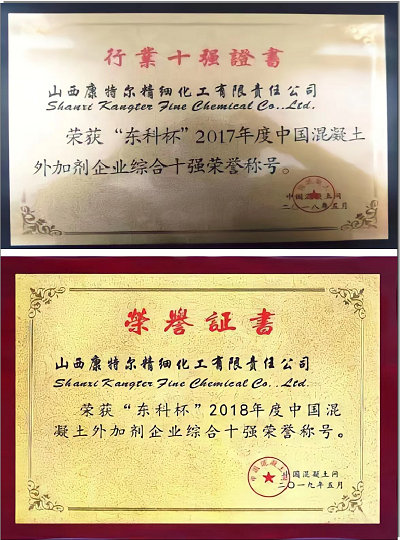 行業十强證書
山西康特尔精细化工有限责任公司
Shanxi Kangter Fine Chemical Co.,Ltd.
荣获“东科杯”2017年度中国混凝土
外加剂企业综合十强荣誉称号。
中国混凝土网
二〇一八年五月
榮譽証書
山西康特尔精细化工有限责任公司
Shanxi Kangter Fine Chemical Co.,Ltd.
荣获“东科杯”2018年度中国混
凝土外加剂企业综合十强荣誉称号。
中国混凝土网
二〇一九年五月